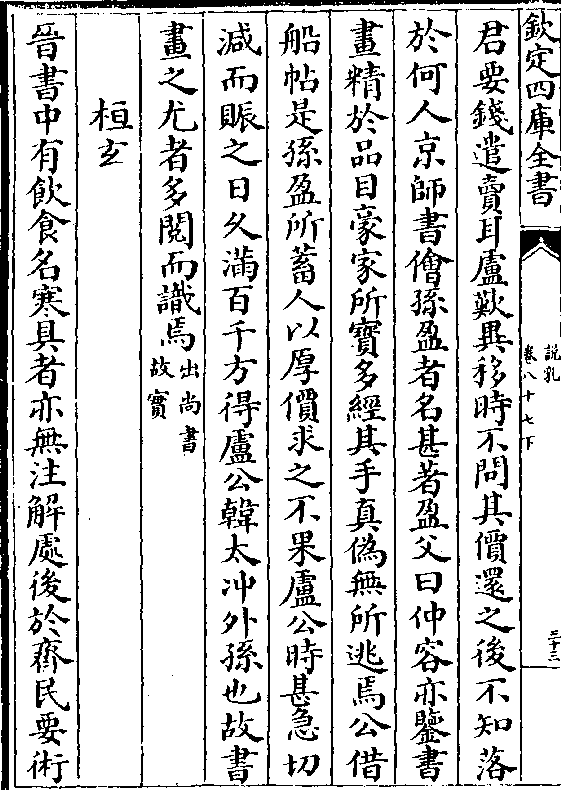 欽定四庫全書
說郛
卷八十七下
三十三
君要錢遣賣耳盧歎異移時不問其價還之後不知落
於何人京師書儈孫盈者名甚著盈父曰仲容亦鑒書
畫精於品目豪家所寶多經其手真偽無所逃焉公借
船帖是孫盈所蓄人以厚價求之不果盧公時甚急切
減而賑之日久滿百千方得盧公韓太冲外孫也故書
畫之尤者多閱而識焉出尚書故實
桓玄
晉書中有飲食名寒具者亦無注解處後於齊民要術